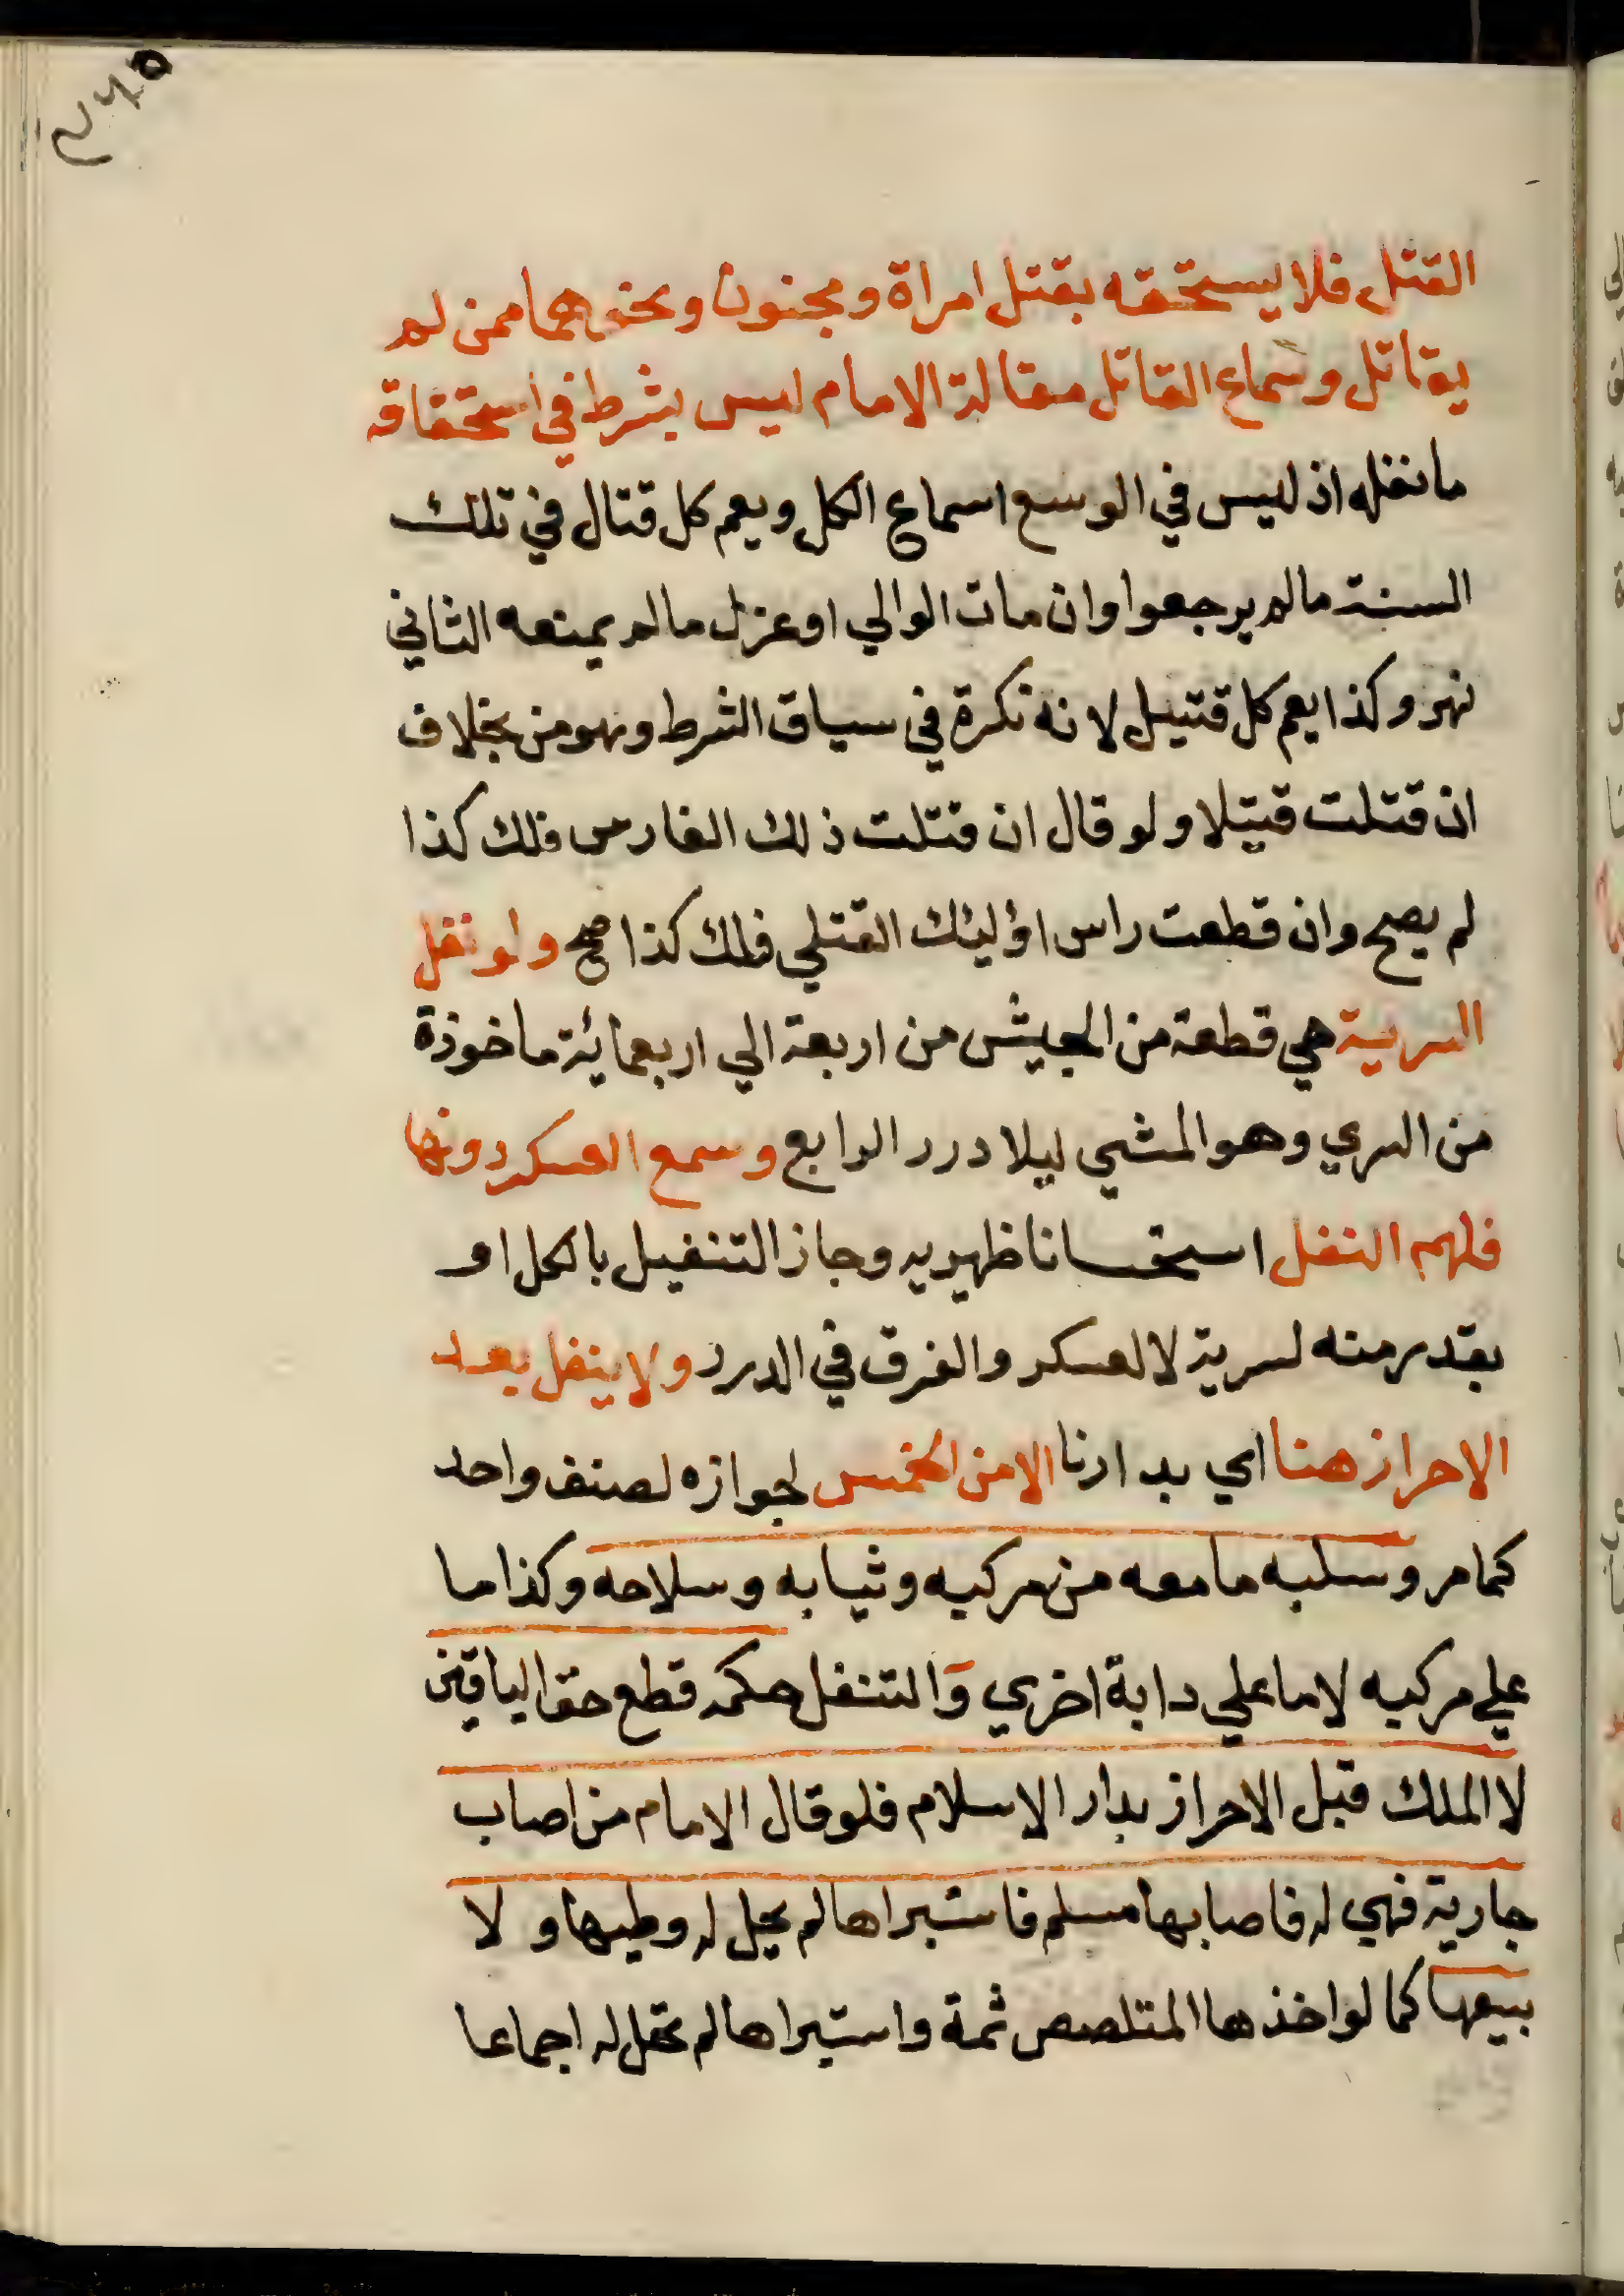 ٢٧٥
القتل فلا يستحقه بقتل امراة ومجنون ونحوهما ممن لم
يقاتل وسماع القاتل مقالة الامام ليس بشرط في استحقاقه
ما نفله اذ ليس في الوسع اسماع الكل ويعم كل قتال في تلك
السنة ما لم يرجعوا وان مات الوالي او عزل ما لم يمنعه الثاني
نهر وكذا يعم كل قتيل لانه نكرة في سياق الشرط وهو من بخلاف
ان قتلت قتيلا ولو قال ان قتلت ذلك الفارس فلك كذا
لم يصح وان قطعت راس اوليك القتلي فلك كذا صح ولو نفل
السرية هي قطعة من الجيش من اربعة الي اربعمائة ماخوذة
من السري وهو المشي ليلا درر الرابع وسمع العسكر دونها
فلهم النفل استحسانا ظهيريه وجاز التنفيل بالكل او
بقدر منه لسرية لا لعسكر والفرق في الدرر ولا ينفل بعد
الاحراز هنا اي بدارنا الا من الخمس لجوازه لصنف واحد
كما مر وسلبه ما معه من مركبه وثيابه وسلاحه وكذا ما
علي مركبه لا ما علي دابة اخري والتنفل حكمه قطع حق الباقين
لا الملك قبل الاحراز بدار الاسلام فلو قال الامام من اصاب
جارية فهي له فاصابها مسلم فاستبراها لم يحل له وطيها ولا
بيعها كما لو اخذها المتلصص ثمة واستبراها لم تحل له اجماعا